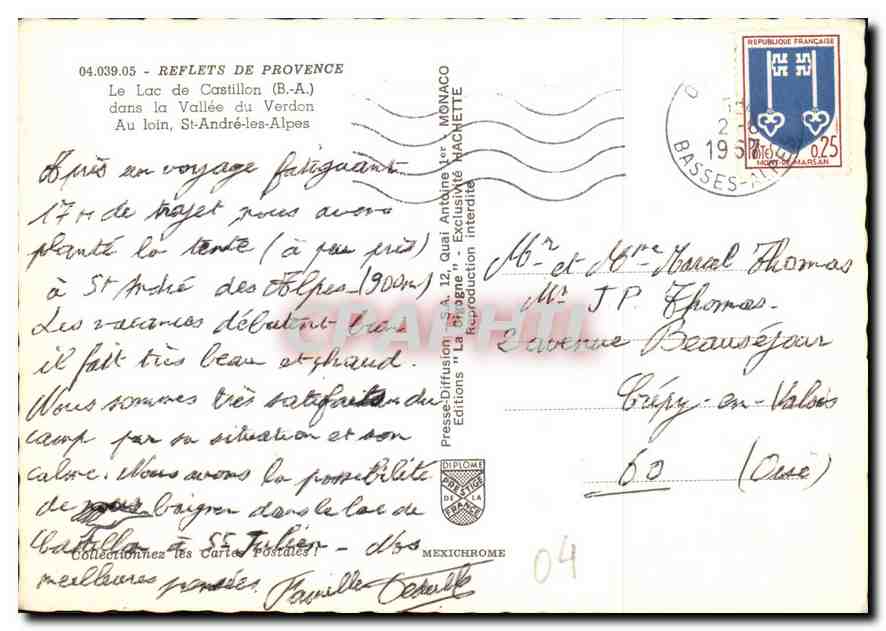 04.039.05 - REFLETS DE PROVENCE
Le Lac de Castillon (B.-A.)
dans la Vallée du Verdon
Au loin, St-André-les-Alpes
Après un voyage fatiguant
17 H de trajet nous avons
planté la tente (à peu près)
à St André des Alpes (900m)
Les vacances débutent bien
il fait très beau et chaud.
Nous sommes très satisfaits du
camp par sa situation et son
calme. Nous avons la possibilité
de nous baigner dans le lac de
Castillon à St Julien - Nos
meilleures pensées. Famille
Collectionnez les Cartes Postales !
MEXICHROME
Presse-Diffusion - S.A. 12, Quai Antoine 1er - MONACO
Editions "La Cigogne" - Exclusivité HACHETTE
Reproduction interdite
DIPLOME
PRESTIGE
DE LA
FRANCE
REPUBLIQUE FRANÇAISE
POSTES 0,25
MONT-DE-MARSAN
1967
BASSES-ALPES
Mr et Mme Marcel Thomas
Mr J P. Thomas.
2 avenue Beauséjour
Crépy-en-Valois
60 (Oise)
04
CPARHTI